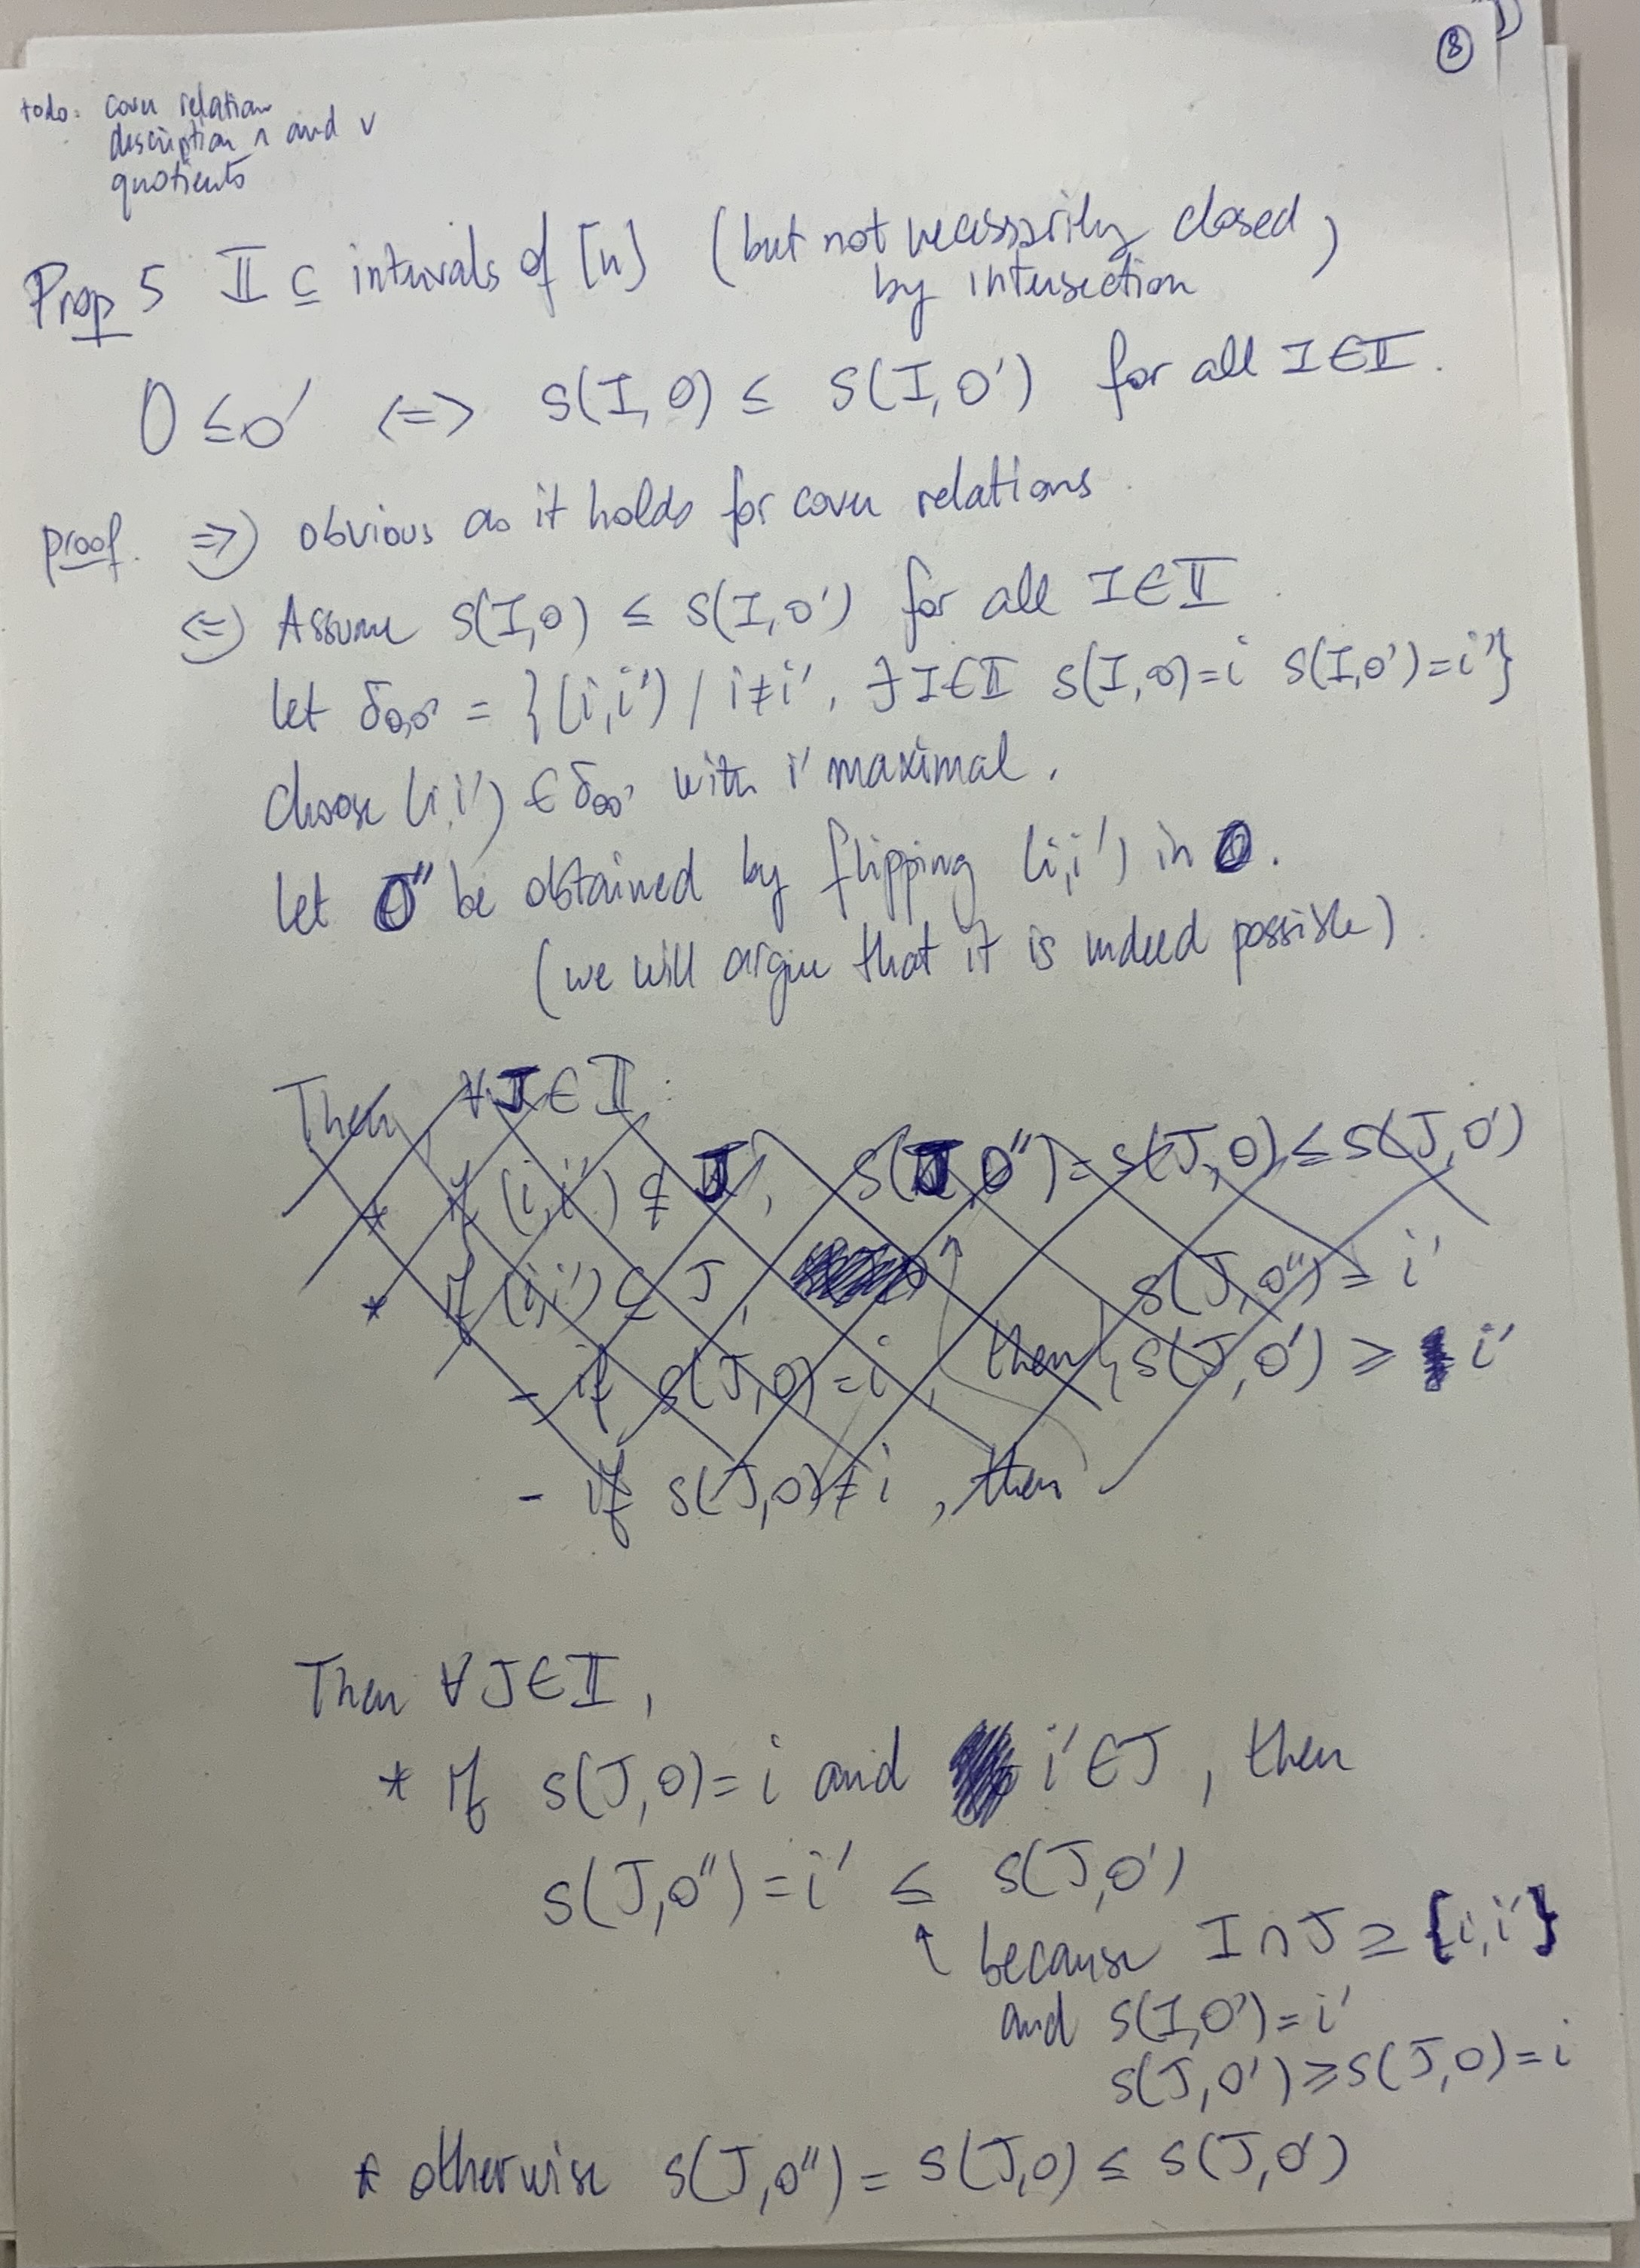 8
todo: cover relation
description ∧ and ∨
quotients
Prop 5 𝕀 ⊆ intervals of [n] (but not necessarily closed
by intersection)
O ≤ O' <=> s(I,O) ≤ s(I,O') for all I ∈ 𝕀.
proof. =>) obvious as it holds for cover relations.
<=) Assume s(I,O) ≤ s(I,O') for all I ∈ 𝕀.
let δ_{O,O'} = {(i,i') / i≠i', ∃ I ∈ 𝕀 s(I,O)=i s(I,O')=i'}
choose (i,i') ∈ δ_{OO'} with i' maximal.
let O'' be obtained by flipping (i,i') in O.
(we will argue that it is indeed possible).
Then ∀ J ∈ 𝕀 :
* if (i,i') ⊄ J, s(J,O'') = s(J,O) ≤ s(J,O')
* if (i,i') ⊂ J,
- if s(J,O) = i, then { s(J,O'') = i'
s(J,O') ≥ i'
- if s(J,O) ≠ i, then
Then ∀ J ∈ 𝕀,
* if s(J,O) = i and i' ∈ J, then
s(J,O'') = i' ≤ s(J,O')
↑ because I ∩ J ⊇ {i,i'}
and s(I,O') = i'
s(J,O') ≥ s(J,O) = i
* otherwise s(J,O'') = s(J,O) ≤ s(J,O')